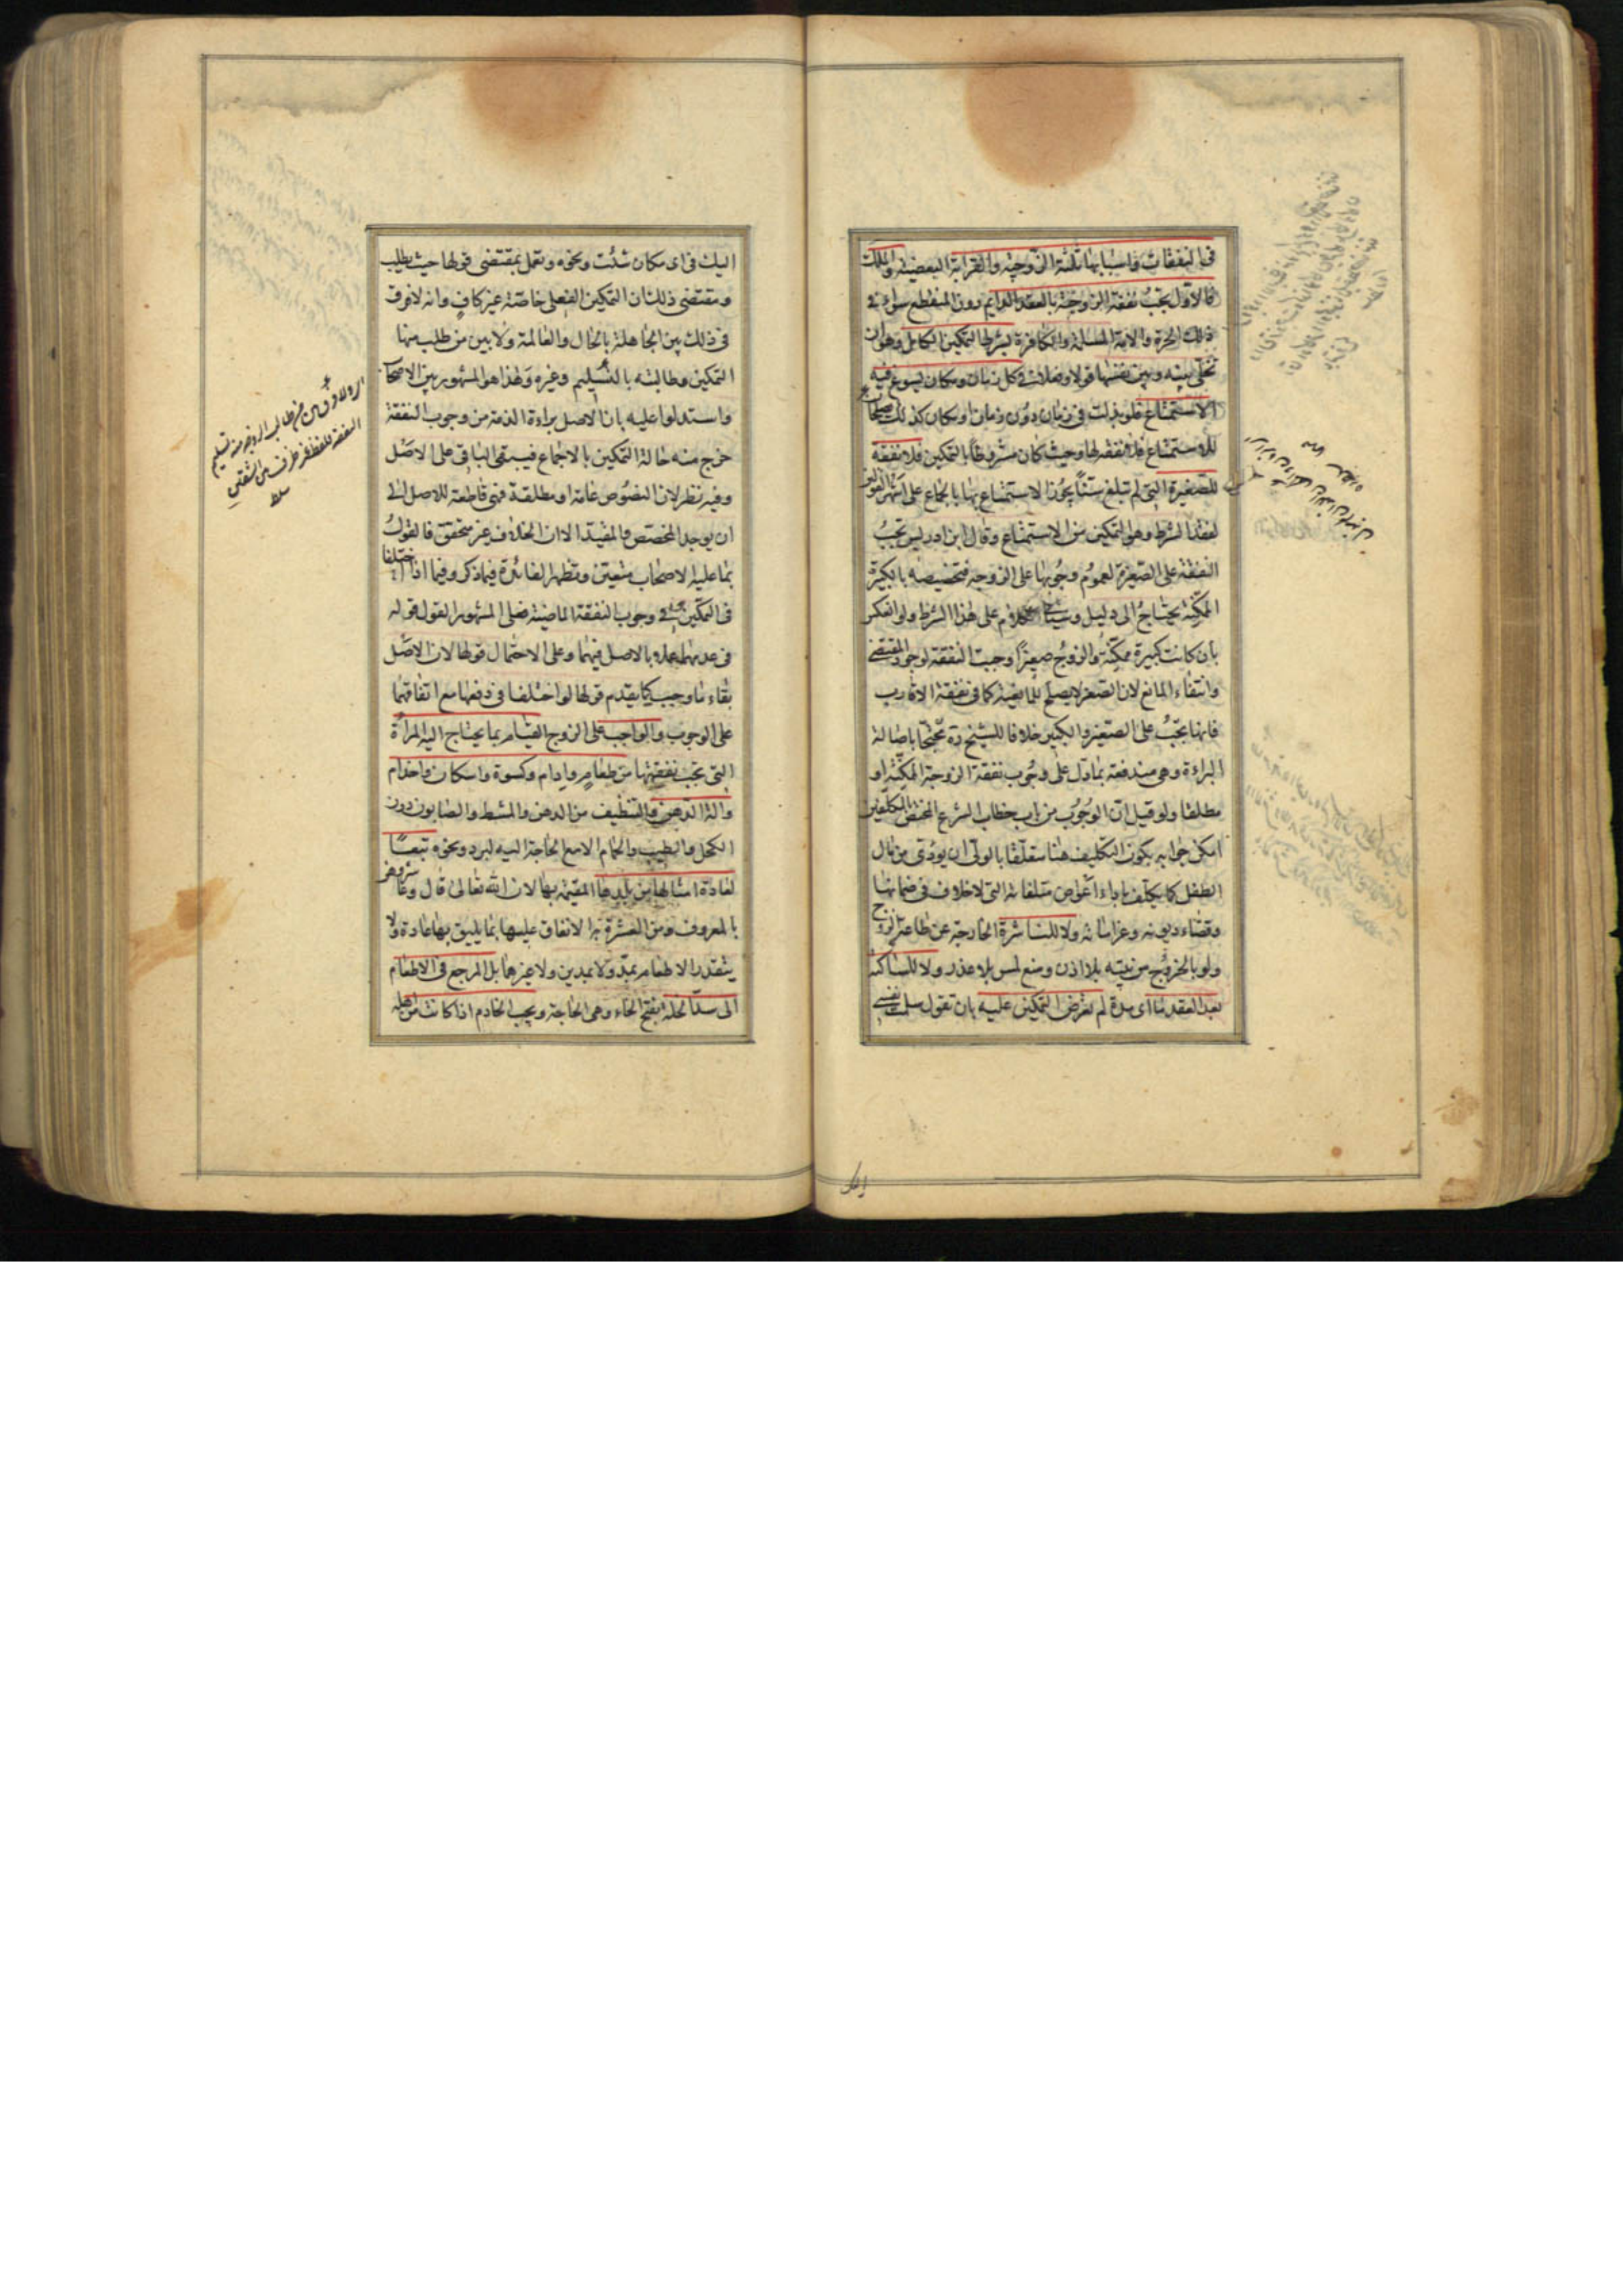 فى النفقات واسبابها ثلثة الزوجية والقرابة البعضية والملك
فالاول تجب نفقة الزوجة بالعقد الدايم دون المنقطع سواء فى
ذلك الحرة والامة المسلمة والكافرة بشرط التمكين الكامل وهو ان
تخلى بينه وبين نفسها قولا وفعلا فى كل زمان ومكان يسوغ فيه
الاستمتاع فلو بذلت فى زمان دون زمان او مكان كذلك صالحا
للاستمتاع فلا نفقة لها وحيث كان مشروطا بالتمكين فلا نفقة
للصغيرة التى لم تبلغ سنا يجوز الاستمتاع بها بالجماع على اشهر القولين
لفقد الشرط وهو التمكين من الاستمتاع وقال ابن ادريس تجب
النفقة على الصغيرة لعموم وجوبها على الزوجة فتخصيصه بالكبيرة
الممكنة يحتاج الى دليل وسياتى الكلام على هذا الشرط ولو انعكس
بان كانت كبيرة ممكنة والزوج صغيرا وجبت النفقة لوجود المقتضى
وانتفاء المانع لان الصغر لا يصلح للمانعية كما فى نفقة الاقارب
فانها تجب على الصغير والكبير خلافا للشيخ ره محتجا باصالة
البراءة وهى مندفعة بما دل على وجوب نفقة الزوجة الممكنة او
مطلقا ولو قيل ان الوجوب من باب خطاب الشرع المختص بالمكلفين
امكن جوابه بكون التكليف هنا متعلقا بالولى ان يؤدى من مال
الطفل كما يكلف باداء اعواض متلفاته التى لا خلاف فى ضمانها
وقضاء ديونه وغراماته ولا للناشزة الخارجة عن طاعة الزوج
ولو بالخروج من بيته بلا اذن ومنع لمس بلا عذر ولا للساكتة
بعد العقد ما اى مدة لم تعرض التمكين عليه بان تقول سلمت نفسى
اليك
اليك فى اى مكان شئت ونحوه وتعمل بمقتضى قولها حيث يطلب
ومقتضى ذلك ان التمكين الفعلى خاصة غير كاف وانه لا فرق
فى ذلك بين الجاهلة بالحال والعالمة ولا بين من طلب منها
التمكين وطالبته بالتسليم وغيره وهذا هو المشهور بين الاصحاب
واستدلوا عليه بان الاصل براءة الذمة من وجوب النفقة
خرج منه حالة التمكين بالاجماع فيبقى الباقى على الاصل
وفيه نظر لان النصوص عامة او مطلقة فهى قاطعة للاصل الى
ان يوجد المخصص والمقيد الا ان الخلاف غير متحقق فالقول
بما عليه الاصحاب متعين وتظهر الفائدة فيما ذكر وفيما اذا اختلفا
فى التمكين فى وجوب النفقة الماضية فعلى المشهور القول قوله
فى عدمهما عملا بالاصل فيهما وعلى الاحتمال قولها لان الاصل
بقاء ما وجب كما يقدم قولها لو اختلفا فى دفعها مع اتفاقهما
على الوجوب والواجب على الزوج القيام بما يحتاج اليه المرأة
التى تجب نفقتها من طعام وادام وكسوة واسكان واخدام
والة الدهن والتنظيف من الدهن والمشط والصابون دون
الكحل والطيب والحمام الا مع الحاجة اليه لبرد ونحوه تبعا
لعادة امثالها من بلدها المقيمة بها لان الله تعالى قال وعاشروهن
بالمعروف ومن العشرة به الانفاق عليها بما يليق بها عادة ولا
يتقدر الاطعام بمد ولا بمدين ولا غيرهما بل المرجع فى الاطعام
الى سد الخلة بفتح الخاء وهى الحاجة ويجب الخادم اذا كانت من اهله